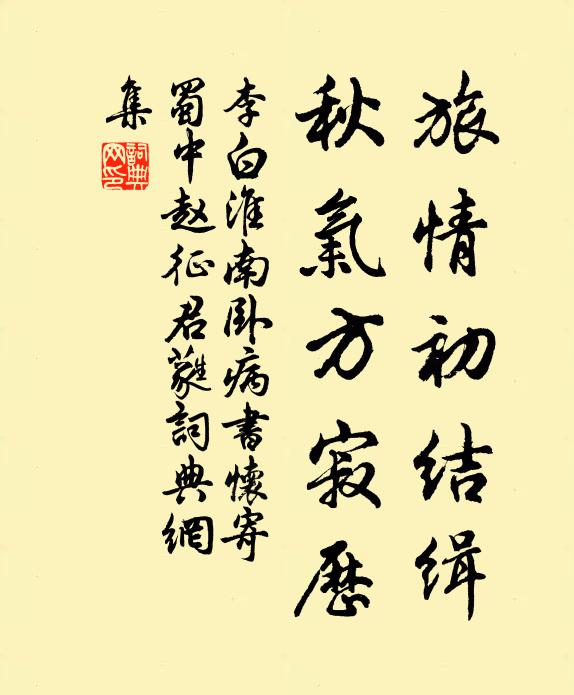 旅情初结缉
秋氣方寂歷
李白淮南卧病書懷寄
蜀中赵征君蕤詞典網
集
詞典網印